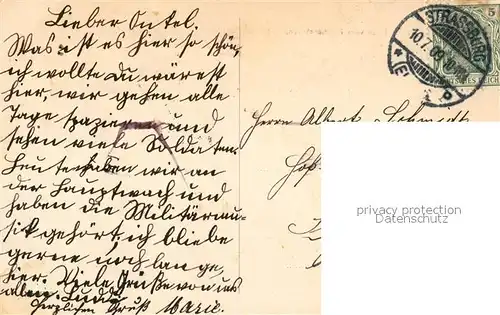 Lieber Onkel.
Was ist es hier so schön,
ich wollte du wärest
hier, wir gehen alle
Tage spazieren und
sehen viele Soldaten.
Heute haben wir an
der Hauptwach und
haben die Militärmu-
sik gehört, ich bliebe
gerne noch lange
hier. Viele Grüße von uns
allen.
Herzlichen Gruß Marie.
STRASSBURG
10.7.09
5
Herrn Albert Schmidt
privacy protection
Datenschutz